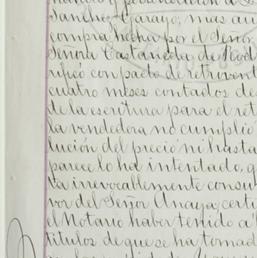 Sanchez Garajo, mas au
compra hecha por el Señor
Señora Castañeda de Rod
rificó con pacto de retrovent
cuatro meses contados des
de la escritura para el ret
la vendedora no cumplió
lución del precio ni hasta
parece lo ha intentado, q
ta irrevocablemente consu
vor del Señor Anaya, certi
el Notario haber tenido á
titulos de que se ha tomad